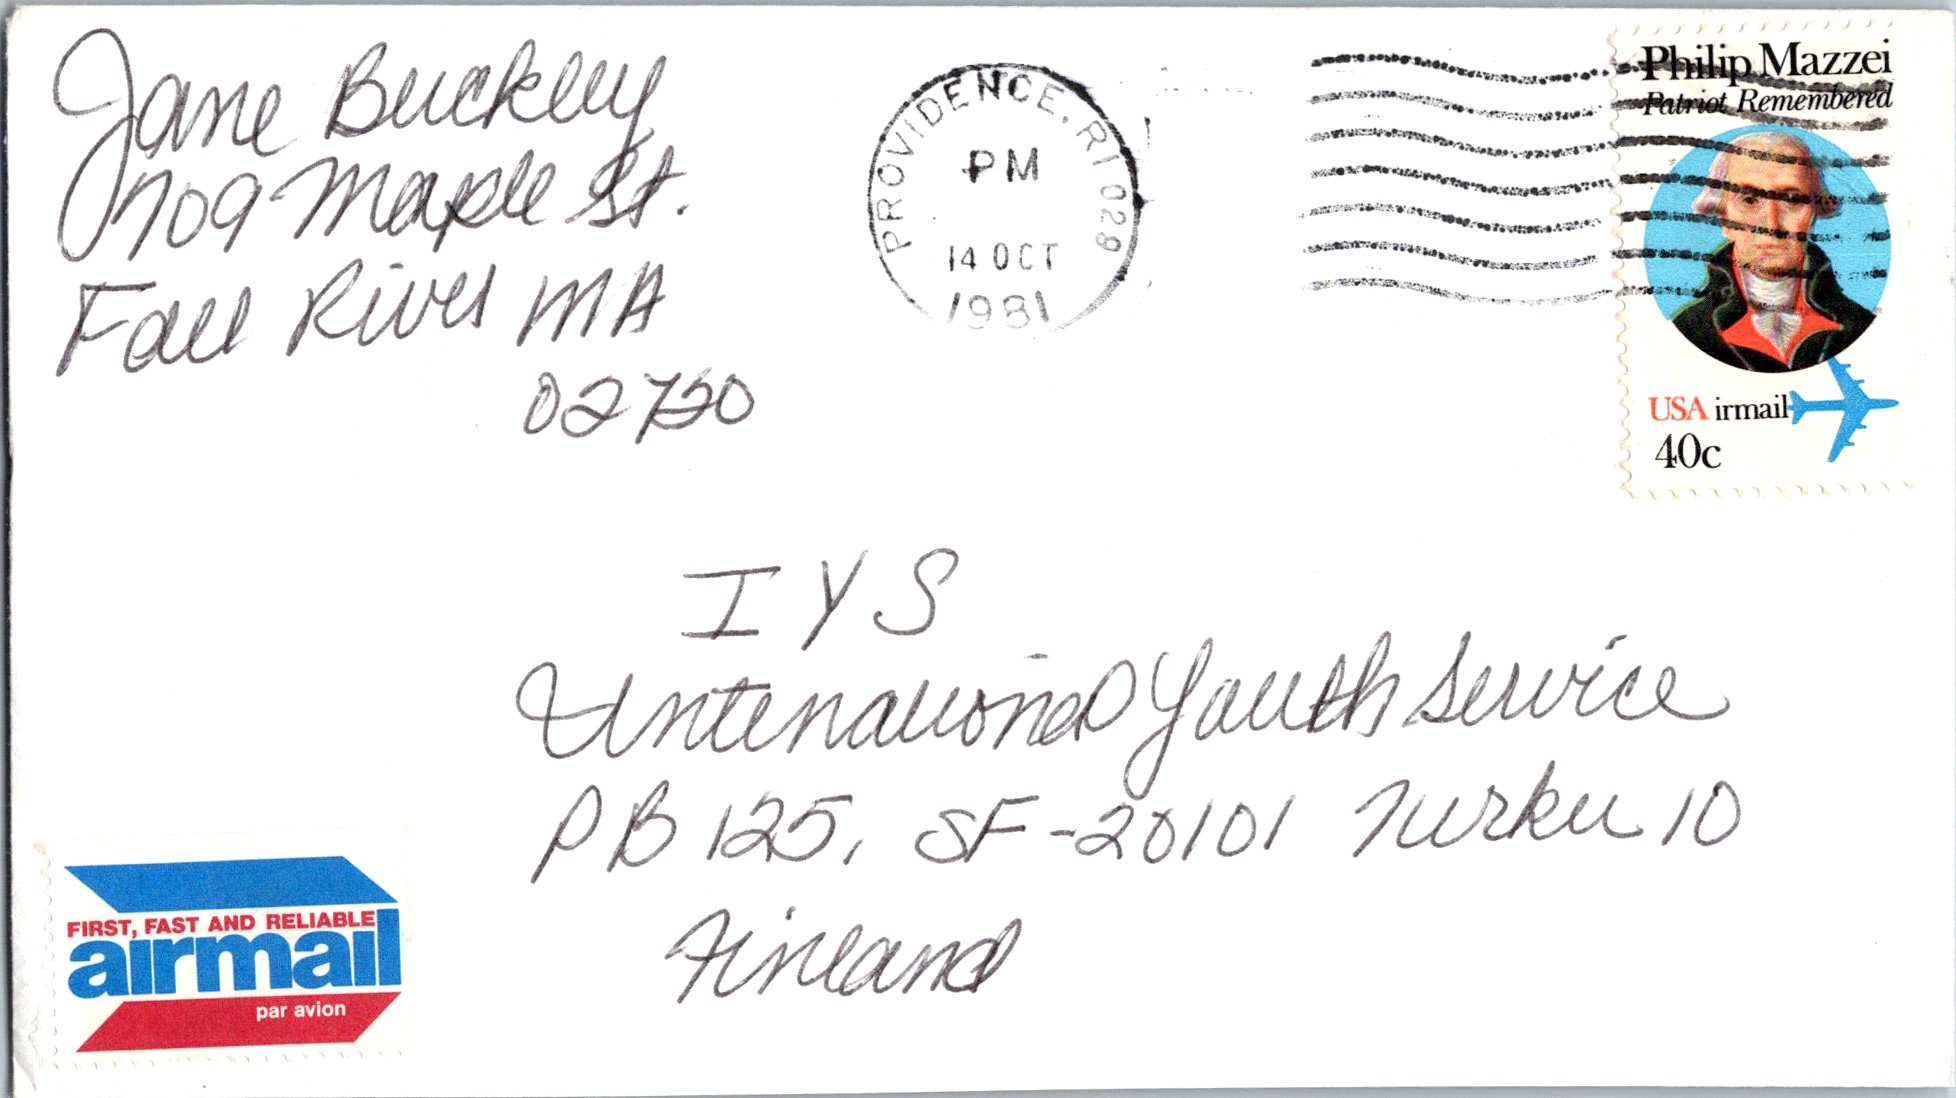 Jane Buckley
709 Maple St.
Fall River MA
02720
PROVIDENCE, RI 029
PM
14 OCT
1981
Philip Mazzei
Patriot Remembered
USA airmail
40c
I Y S
International Youth Service
PB 125, SF-20101 Turku 10
Finland
FIRST, FAST AND RELIABLE
airmail
par avion